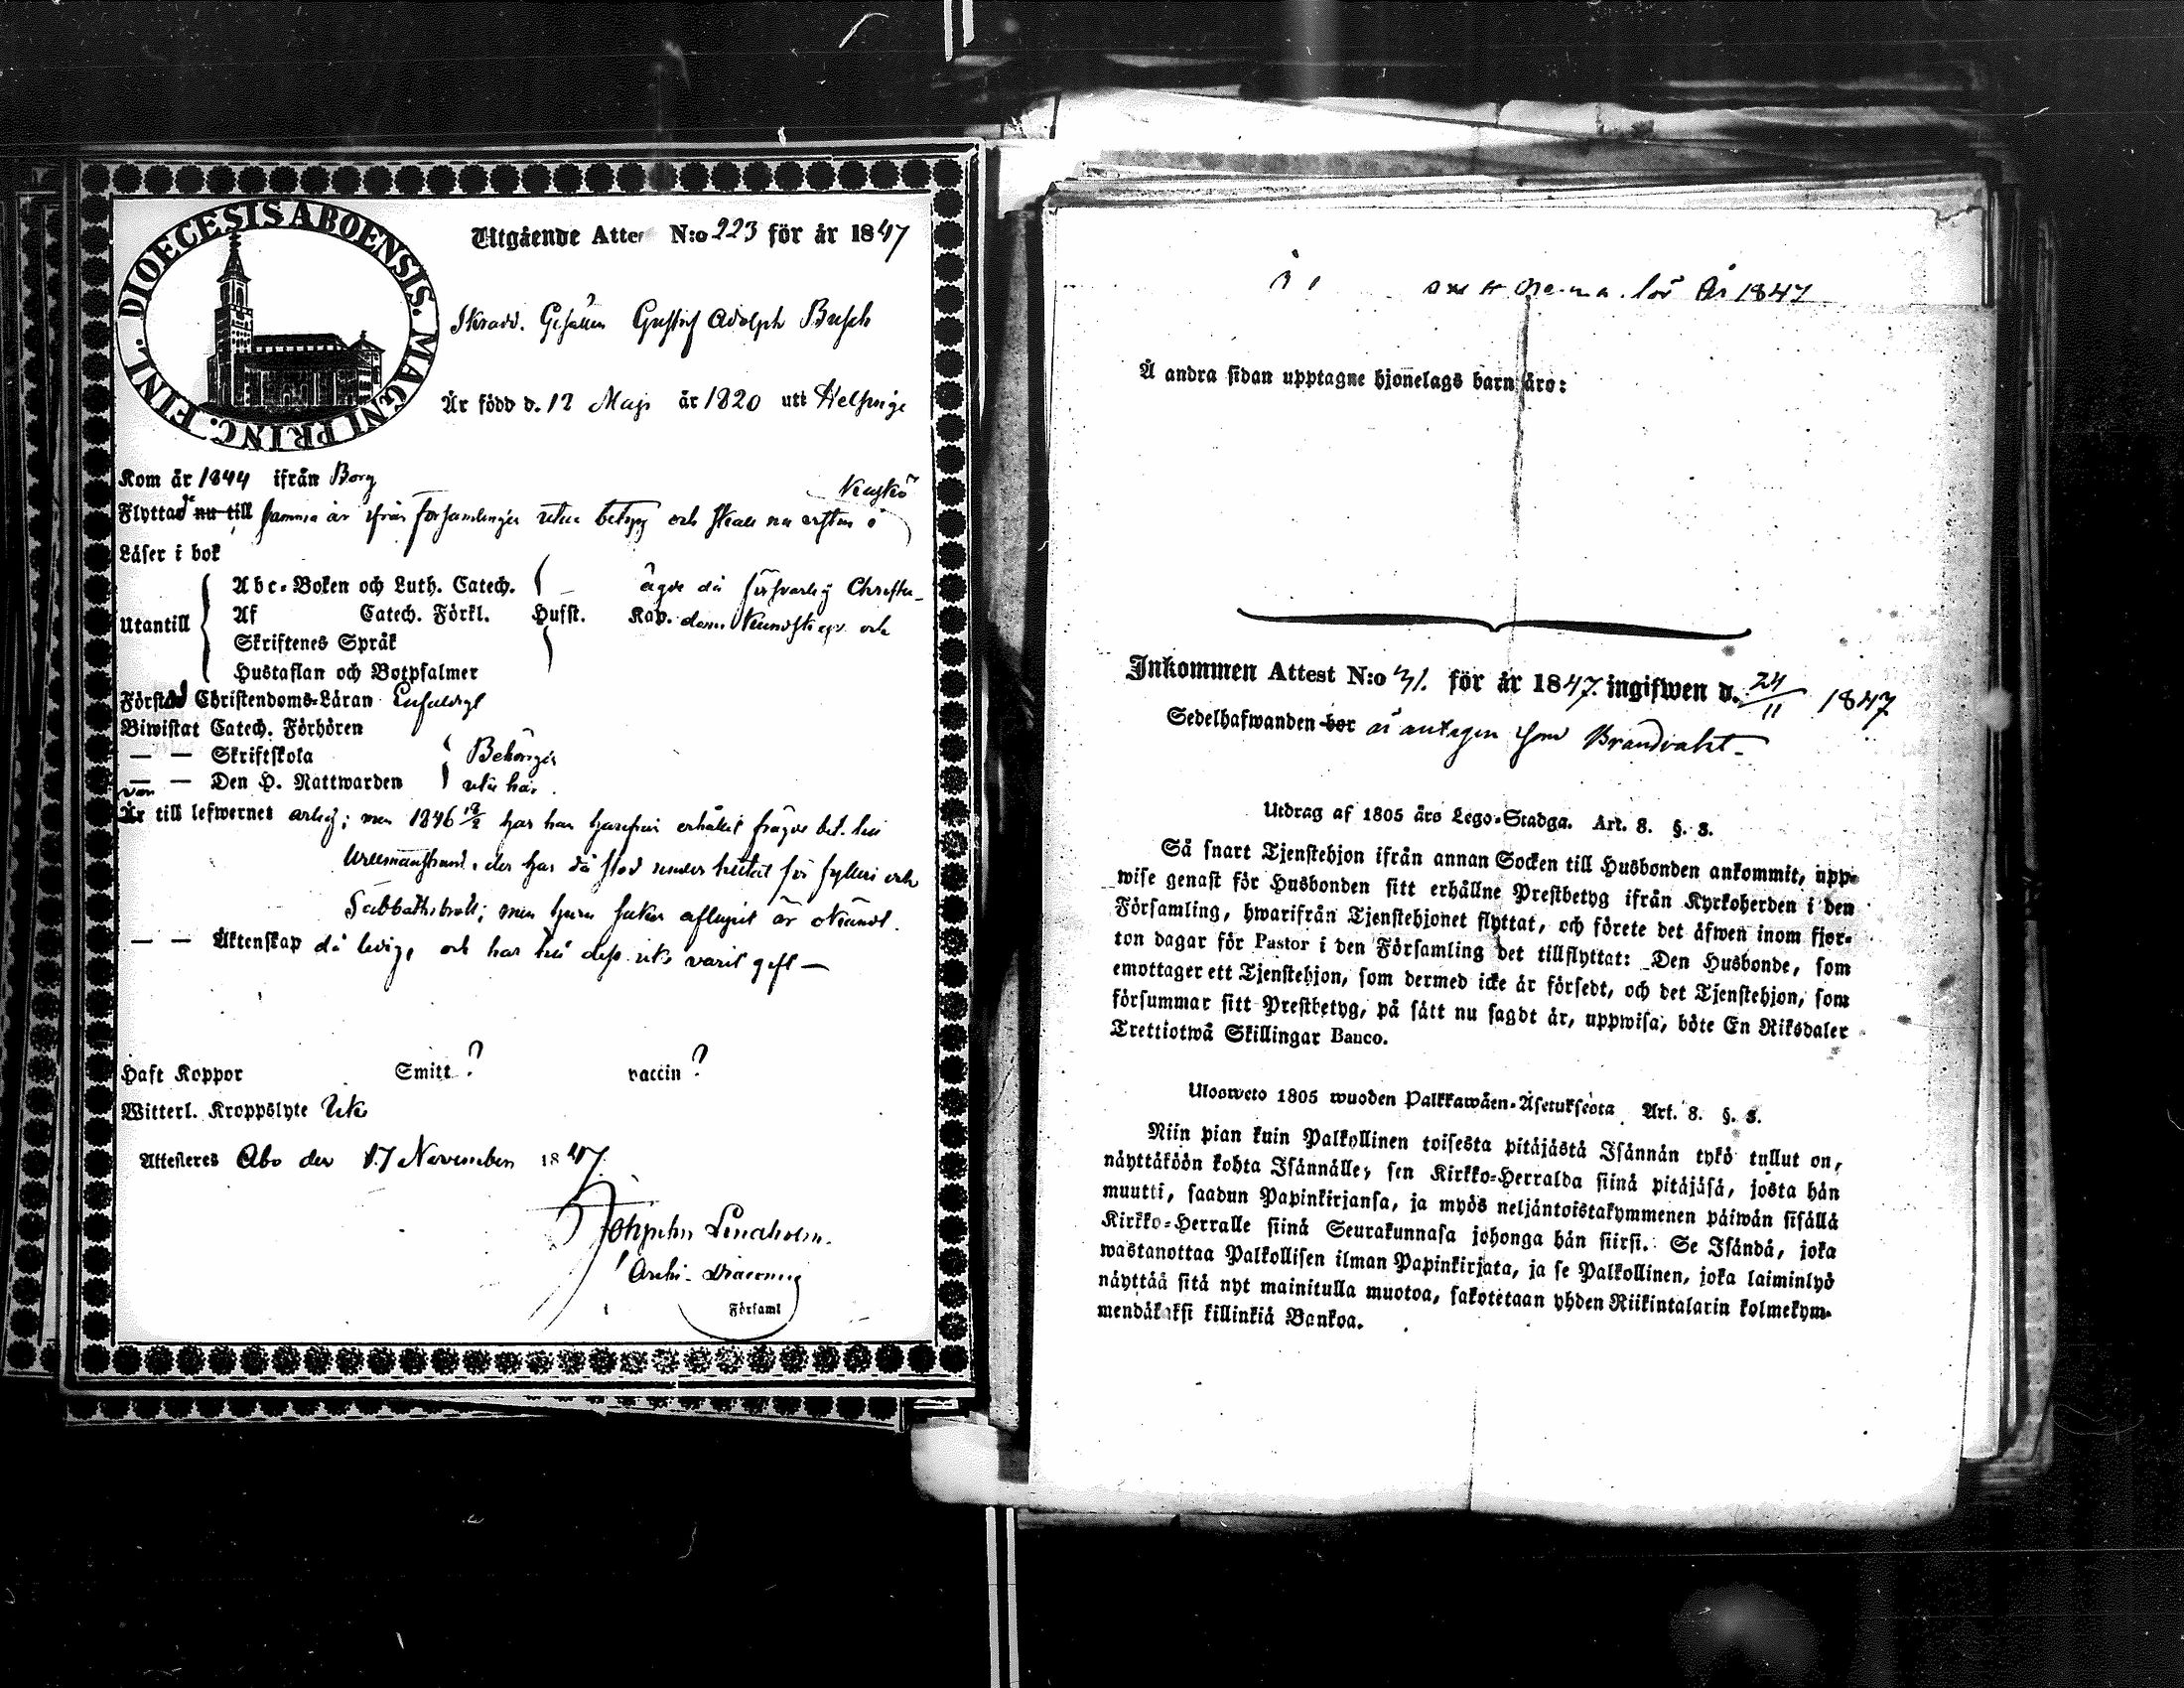 DIOECESIS ABOENSIS. MAGNI PRINC. FINL.
Utgående Attes N:o 223 för år 1847
Skradd. Gesällen Gustaf Adolph Busch
Är född d. 12 Maji år 1820 uti Helsinge
Kom år 1844 ifrån Borg
Kaskö
Flyttad nu till samma år ifrån Församlingen utan betyg och skall nu vistas i
Läser i bok
Abc-Boken och Luth. Catech. ägde då försvarlig Christen-
Utantill Af Catech. Förkl. Husst. Kap. doms Kunskap och
Skriftenes Språk
Hustaflan och Botpsalmer
Förstod Christendoms-Läran Enfaldigt
Biwistat Catech. Förhören
— — Skriftskola Behörigen
— — Den H. Nattwarden icke här.
var
Är till lefwernet ärlig; men 1846 har han härifrån erhållit frägde bet. till
der har då stod under tilltal för fylleri och
Sabbathsbrott; men huru saken aflupit är okändt.
— — Äktenskap då ledig, och har till dess icke varit gift —
Haft Koppor Smitt ? vaccin ?
Witterl. Kroppslyte Icke
Attesteras Åbo den 17 November 1847.
Lindholm.
Archi-Diaconus
i Församl
för År 1847
Å andra sidan upptagne hjonelags barn äro:
Inkommen Attest N:o 31. för år 1847. ingifwen d. 24/11 1847
Sedelhafwanden bor är antagen som Brandvakt-
Utdrag af 1805 års Lego-Stadga. Art. 8. §. 3.
Så snart Tjenstehjon ifrån annan Socken till Husbonden ankommit, upp-
wise genast för Husbonden sitt erhållne Prestbetyg ifrån Kyrkoherden i den
Församling, hwarifrån Tjenstehjonet flyttat, och förete det äfwen inom fjor-
ton dagar för Pastor i den Församling det tillflyttat: Den Husbonde, som
emottager ett Tjenstehjon, som dermed icke är försedt, och det Tjenstehjon, som
försummar sitt Prestbetyg, på sätt nu sagdt är, uppwisa, böte En Riksdaler
Trettiotwå Skillingar Banco.
Ulosweto 1805 wuoden Palkkawäen-Asetuksesta Art. 8. §. 3.
Niin pian kuin Palkollinen toisesta pitäjästä Isännän tykö tullut on,
näyttäköön kohta Isännälle, sen Kirkko-Herralda siinä pitäjäsä, josta hän
muutti, saadun Papinkirjansa, ja myös neljäntoistakymmenen päiwän sisällä
Kirkko-Herralle siinä Seurakunnasa johonga hän siirsi. Se Isändä, joka
wastanottaa Palkollisen ilman Papinkirjata, ja se Palkollinen, joka laiminlyö
näyttää sitä nyt mainitulla muotoa, sakotetaan yhden Riikintalarin kolmekym-
mendäkaksi killinkiä Bankoa.